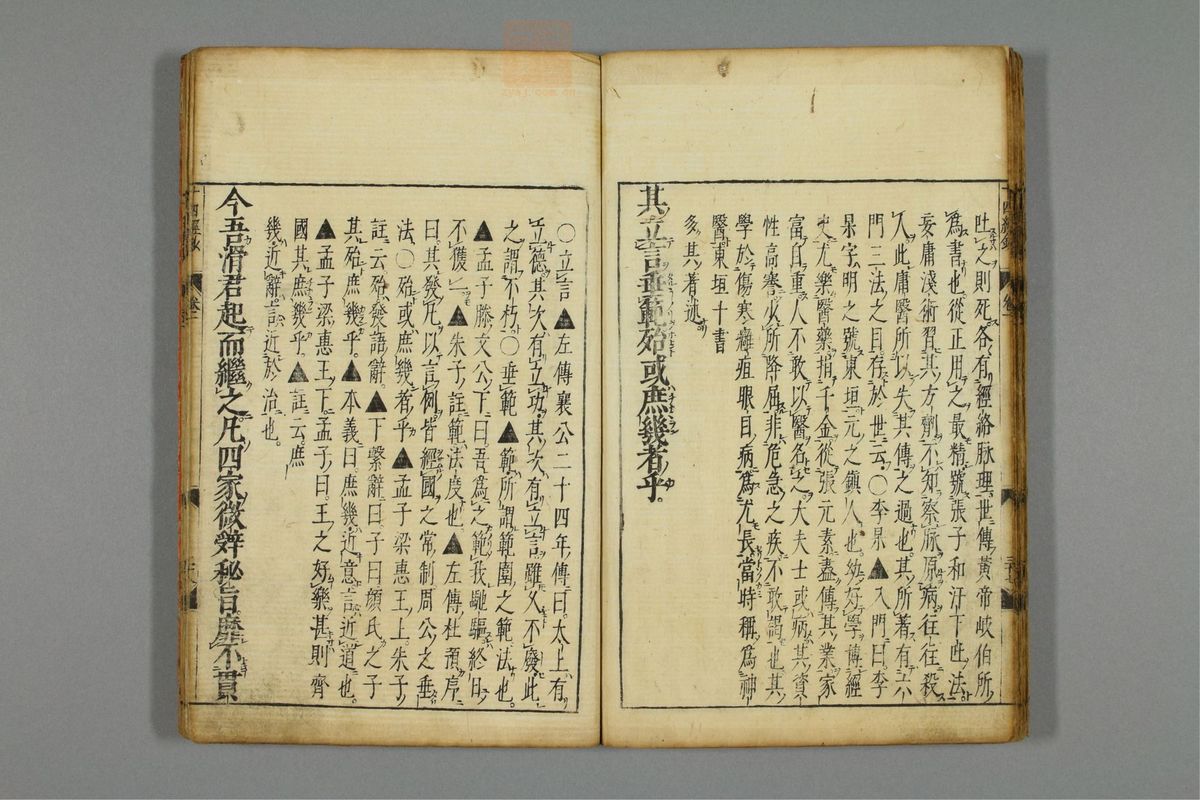 吐之則死各有經絡脉理世傳黃帝岐伯所
為書也從正用之最精號張子和汗下吐法
妄庸淺術習其方劑不知察脉原病往往殺
人此庸醫所以失其傳之過也其所著有六
門三法之目存於世云○李杲▲入門曰李
杲字明之號東垣元之鎮人也幼好學博經
史尤樂醫藥捐千金從張元素盡傳其業家
富自重人不敢以醫名之大夫士或病其資
性高謇少所降屈非危急之疾不敢謁也其
學於傷寒癰疽眼目病為尤長當時稱為神
醫東垣十書
多其著述
其立言垂範殆或庶幾者乎
○立言▲左傳襄公二十四年傳曰太上有
立德其次有立功其次有立言雖久不廢此
之謂不朽○垂範▲範所謂範圍之範法也
▲孟子滕文公下曰吾為之範我馳驅終日
不獲一▲朱子註範法度也▲左傳杜預序
曰其發凡以言例皆經國之常制周公之垂
法○殆或庶幾者乎▲孟子梁惠王上朱子
註云殆發語辭▲下繫辭曰子曰顏氏之子
其殆庶幾乎▲本義曰庶幾近意言近道也
▲孟子梁惠王下孟子曰王之好樂甚則齊
國其庶幾乎▲註云庶
幾近辭言近於治也
今吾滑君起而繼之凡四家微辭秘旨靡不貫
四經
卷